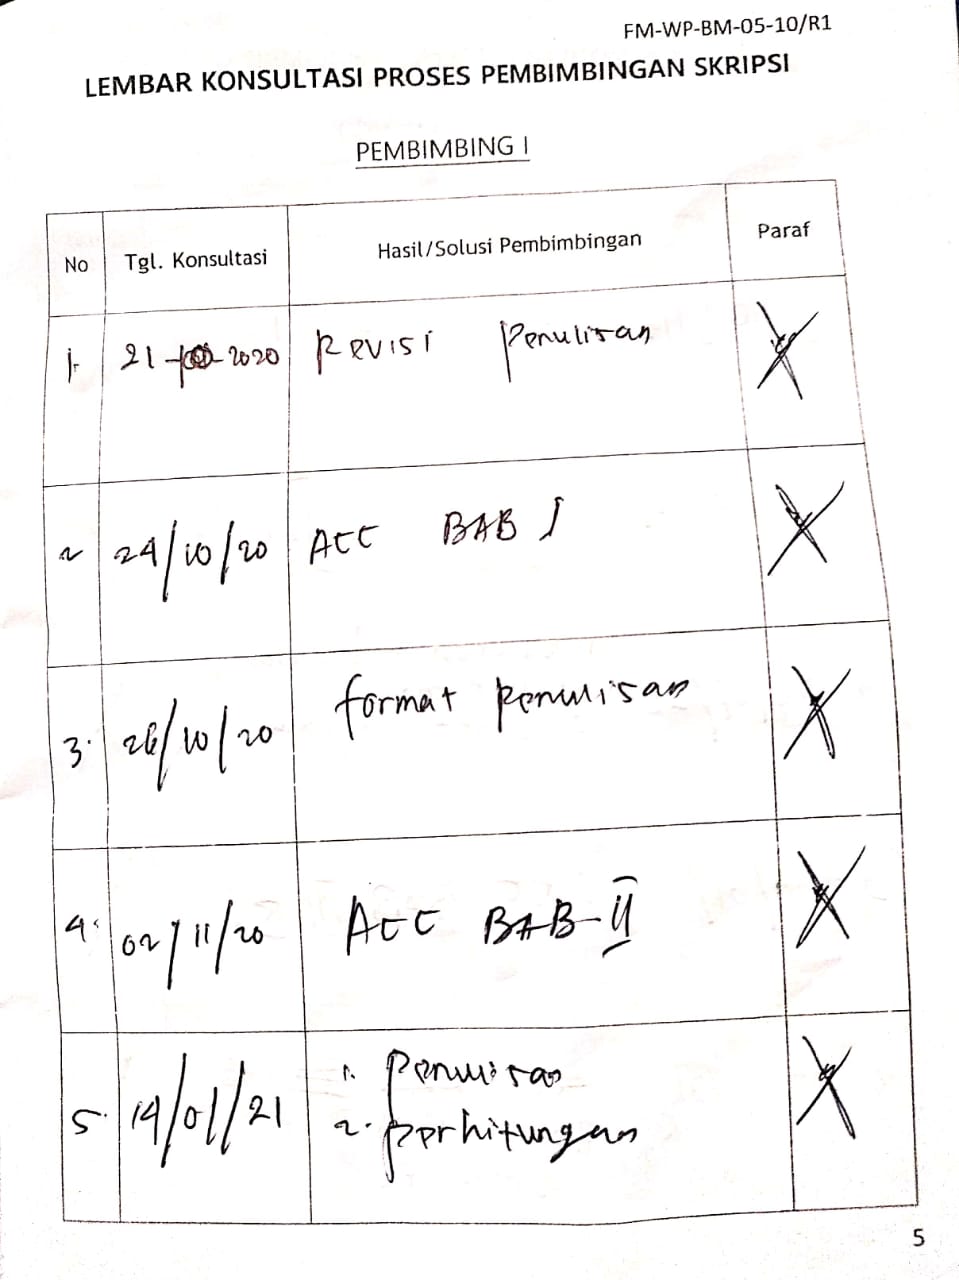 FM-WP-BM-05-10/R1
LEMBAR KONSULTASI PROSES PEMBIMBINGAN SKRIPSI
PEMBIMBING I
No Tgl. Konsultasi Hasil/Solusi Pembimbingan Paraf
1. 21 - - 2020 Revisi Penulisan
2 24/10/20 ACC BAB I
3. 26/10/20 format penulisan
4. 02/11/20 ACC BAB-II
5. 14/01/21 1. Penulisan
2. perhitungan
5